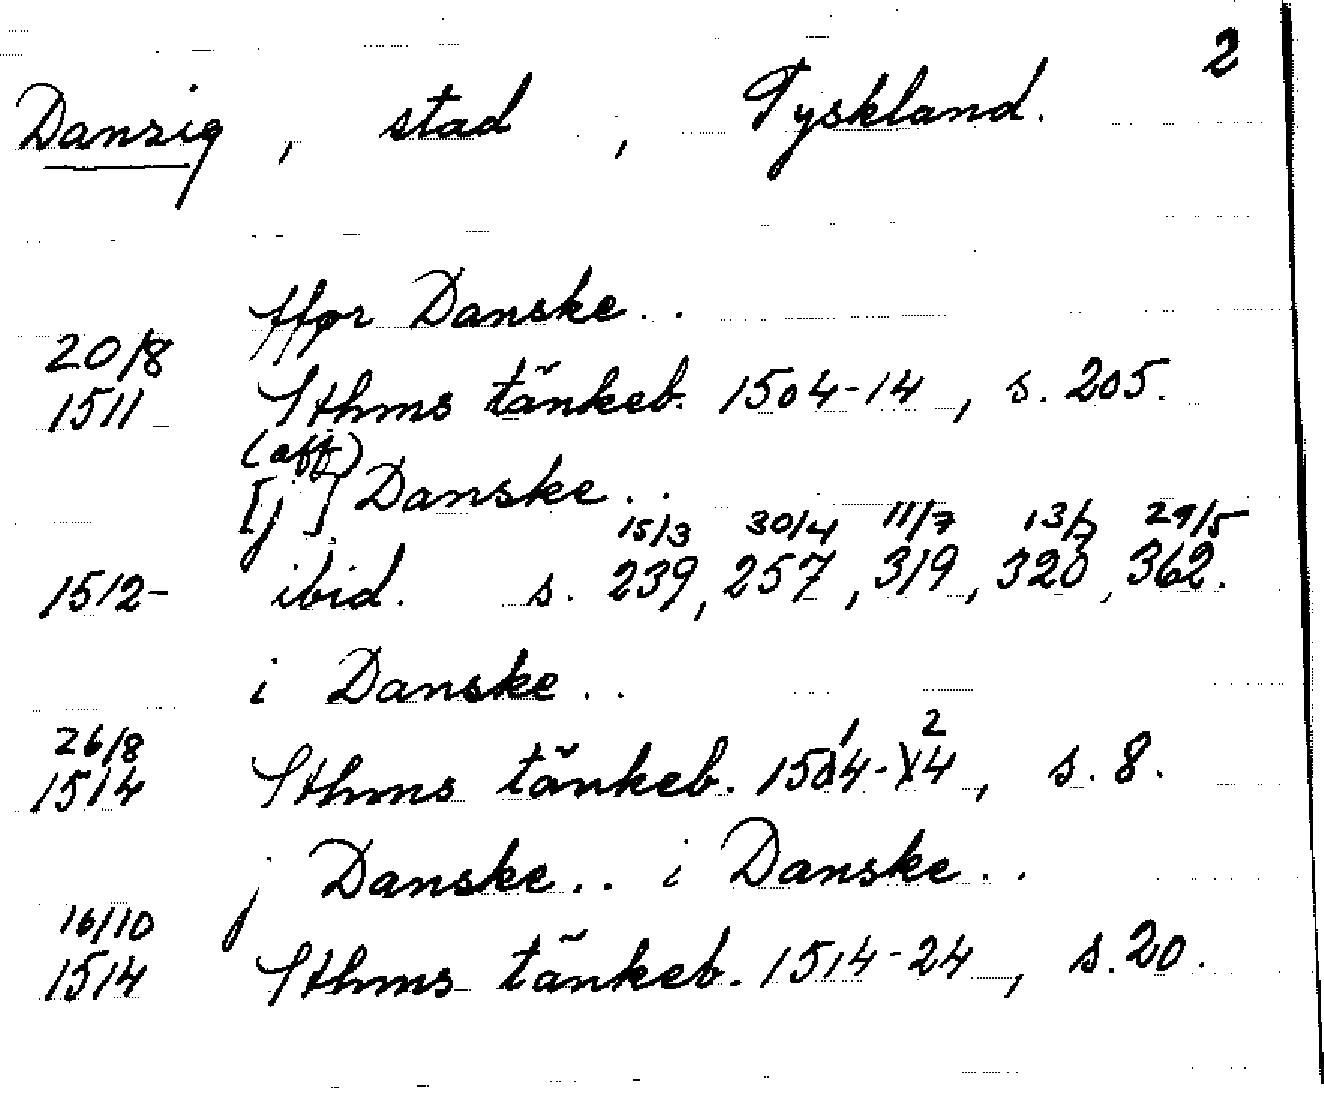 2
Danzig, stad, Tyskland.
ffor Danske..
20/8
1511 Sthms tänkeb. 1504-14, s. 205.
(aff)
[j] Danske..
15/3 30/4 11/7 13/7 29/5
1512- ibid. s. 239, 257, 319, 320, 362.
i Danske..
26/8 1 2
1514 Sthms tänkeb. 1504-14, s. 8.
j Danske.. i Danske..
16/10
1514 Sthms tänkeb. 1514-24, s. 20.